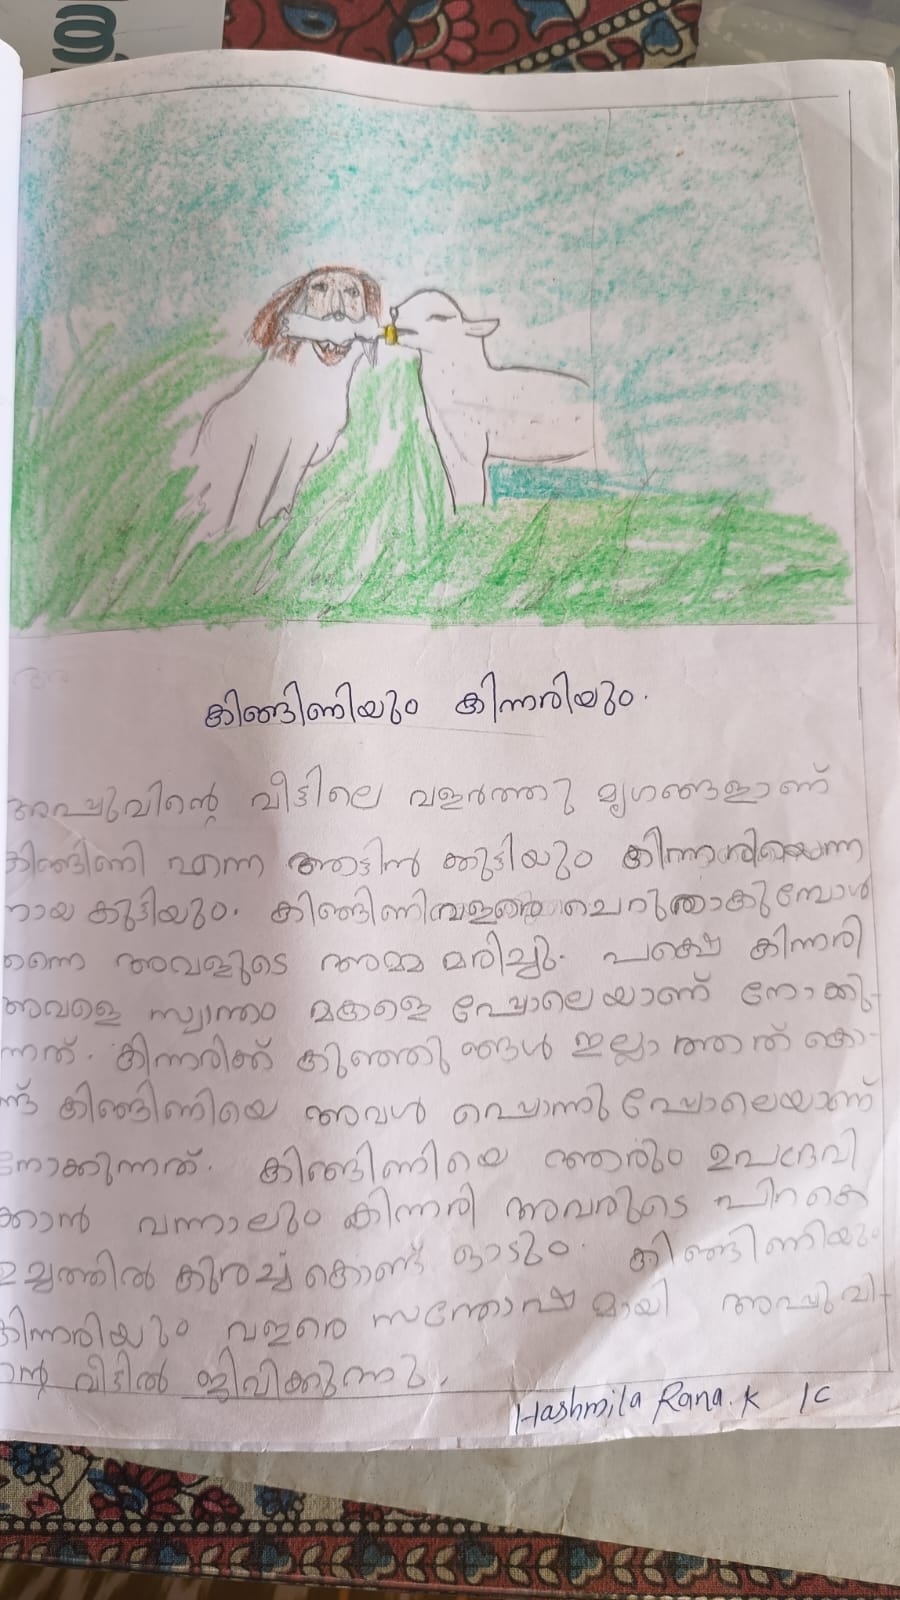 കിങ്ങിണിയും കിന്നരിയും.
അച്ചുവിന്റെ വീട്ടിലെ വളർത്തു മൃഗങ്ങളാണ്
കിങ്ങിണി എന്ന ആട്ടിൻ കുട്ടിയും കിന്നരിയെന്ന
നായ കുട്ടിയും. കിങ്ങിണി വളരെ ചെറുതാകുമ്പോൾ
തന്നെ അവളുടെ അമ്മ മരിച്ചു. പക്ഷെ കിന്നരി
അവളെ സ്വന്തം മകളെ പോലെയാണ് നോക്കു-
ന്നത്. കിന്നരിക്ക് കുഞ്ഞുങ്ങൾ ഇല്ലാത്തത് കൊ-
ണ്ട് കിങ്ങിണിയെ അവൾ പൊന്നു പോലെയാണ്
നോക്കുന്നത്. കിങ്ങിണിയെ ആരും ഉപദ്രവി
ക്കാൻ വന്നാലും കിന്നരി അവരുടെ പിറകെ
ഉച്ചത്തിൽ കുരച്ച് കൊണ്ട് ഓടും. കിങ്ങിണിയും
കിന്നരിയും വളരെ സന്തോഷമായി അച്ചുവി-
ന്റെ വീട്ടിൽ ജീവിക്കുന്നു.
Hashmila Rana. K 1C